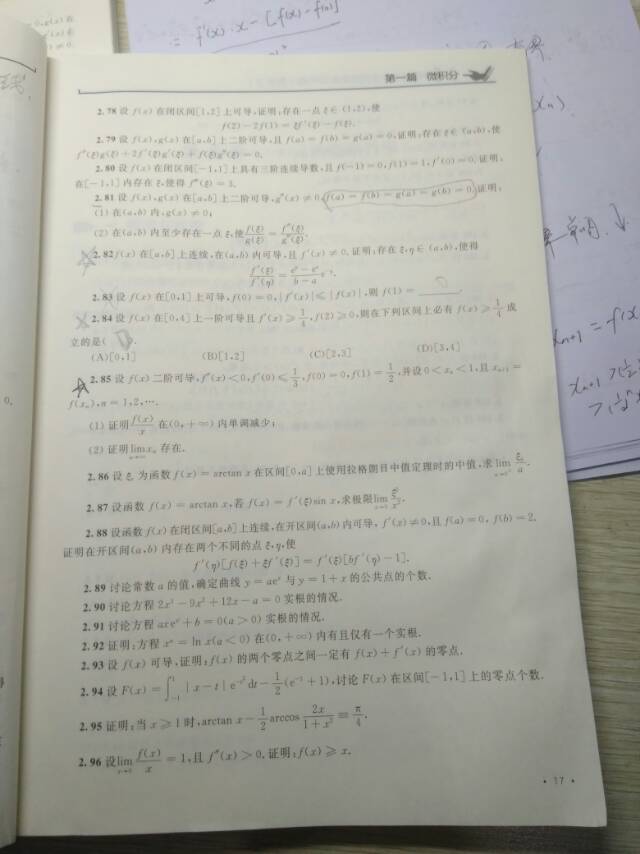 f'(x)·x-[f(x)-f(0)]
第一篇 微积分
2.78 设 f(x) 在闭区间[1,2]上可导,证明:存在一点 ξ∈(1,2),使
f(2)-2f(1)=ξf'(ξ)-f(ξ).
2.79 设 f(x),g(x) 在[a,b]上二阶可导,且 f(a)=f(b)=g(a)=0,证明:存在 ξ∈(a,b),使
f''(ξ)g(ξ)+2f'(ξ)g'(ξ)+f(ξ)g''(ξ)=0.
2.80 设 f(x) 在闭区间[-1,1]上具有三阶连续导数,且 f(-1)=0,f(1)=1,f'(0)=0.证明:
在[-1,1]内存在 ξ,使得 f'''(ξ)=3.
2.81 设 f(x),g(x) 在[a,b]上二阶可导,g''(x)≠0,f(a)=f(b)=g(a)=g(b)=0,证明:
(1) 在(a,b)内,g(x)≠0;
(2) 在(a,b)内至少存在一点 ξ,使 f(ξ)/g(ξ)=f''(ξ)/g''(ξ).
2.82 f(x) 在[a,b]上连续,在(a,b)内可导,且 f'(x)≠0.证明:存在 ξ,η∈(a,b),使得
f'(ξ)/f'(η)=(e^b-e^a)/(b-a)·e^{-η}.
2.83 设 f(x) 在[0,1]上可导,f(0)=0,|f'(x)|≤|f(x)|,则 f(1)=0.
2.84 设 f(x) 在[0,4]上一阶可导且 f'(x)≥1/4,f(2)≥0,则在下列区间上必有 f(x)≥1/4 成
立的是( D ).
(A)[0,1] (B)[1,2] (C)[2,3] (D)[3,4]
2.85 设 f(x) 二阶可导,f''(x)<0,f'(0)≤1/3,f(0)=0,f(1)=1/2,并设 0<x₁<1,且 xₙ₊₁=
f(xₙ),n=1,2,….
(1) 证明 f(x)/x 在(0,+∞)内单调减少;
(2) 证明 lim xₙ 存在.
2.86 设 ξₐ 为函数 f(x)=arctan x 在区间[0,a]上使用拉格朗日中值定理时的中值,求 lim ξₐ/a.
2.87 设函数 f(x)=arctan x,若 f(x)=f'(ξ)sin x,求极限 lim ξ²/x².
2.88 设函数 f(x) 在闭区间[a,b]上连续,在开区间(a,b)内可导, f'(x)≠0,且 f(a)=0, f(b)=2.
证明在开区间(a,b)内存在两个不同的点 ξ,η,使
f'(η)[f(ξ)+ξf'(ξ)]=f'(ξ)[bf'(η)-1].
2.89 讨论常数 a 的值,确定曲线 y=aeˣ 与 y=1+x 的公共点的个数.
2.90 讨论方程 2x³-9x²+12x-a=0 实根的情况.
2.91 讨论方程 axeˣ+b=0(a>0) 实根的情况.
2.92 证明:方程 xᵃ=ln x(a<0) 在(0,+∞)内有且仅有一个实根.
2.93 设 f(x) 可导,证明:f(x) 的两个零点之间一定有 f(x)+f'(x) 的零点.
2.94 设 F(x)=∫₋₁¹|x-t|e^{-t²}dt-1/2(e⁻¹+1),讨论 F(x) 在区间[-1,1]上的零点个数.
2.95 证明:当 x≥1 时,arctan x-1/2 arccos 2x/(1+x²)≡π/4.
2.96 设 lim f(x)/x=1,且 f''(x)>0.证明:f(x)≥x.
· 17 ·